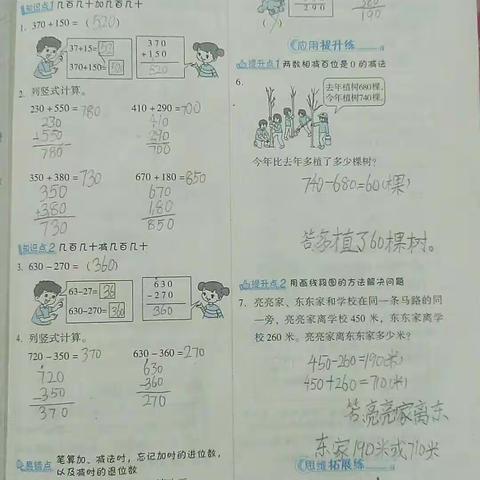 知识点1 几百几十加几百几十
1. 370+150=(520)
37+15=52
370+150=520
370
+150
520
2. 列竖式计算。
230+550=780 410+290=700
230 410
+550 +290
780 700
350+380=730 670+180=850
350 670
+380 +180
730 850
知识点2 几百几十减几百几十
3. 630-270=(360)
63-27=36
630-270=360
630
-270
360
4. 列竖式计算。
720-350=370 630-360=270
720 630
-350 -360
370 270
易错点 笔算加、减法时,忘记加时的进位数,
以及减时的退位数
290
190
应用提升练
提升点1 两数相减百位是0的减法
6.
去年植树680棵,
今年植树740棵。
今年比去年多植了多少棵树?
740-680=60(棵)
答多植了60棵树。
提升点2 用画线段图的方法解决问题
7. 亮亮家、东东家和学校在同一条马路的同
一旁,亮亮家离学校450米,东东家离学
校260米。亮亮家离东东家多少米?
450-260=190(米)
450+260=710(米)
答亮亮家离东
东家190米或710米
思维拓展练